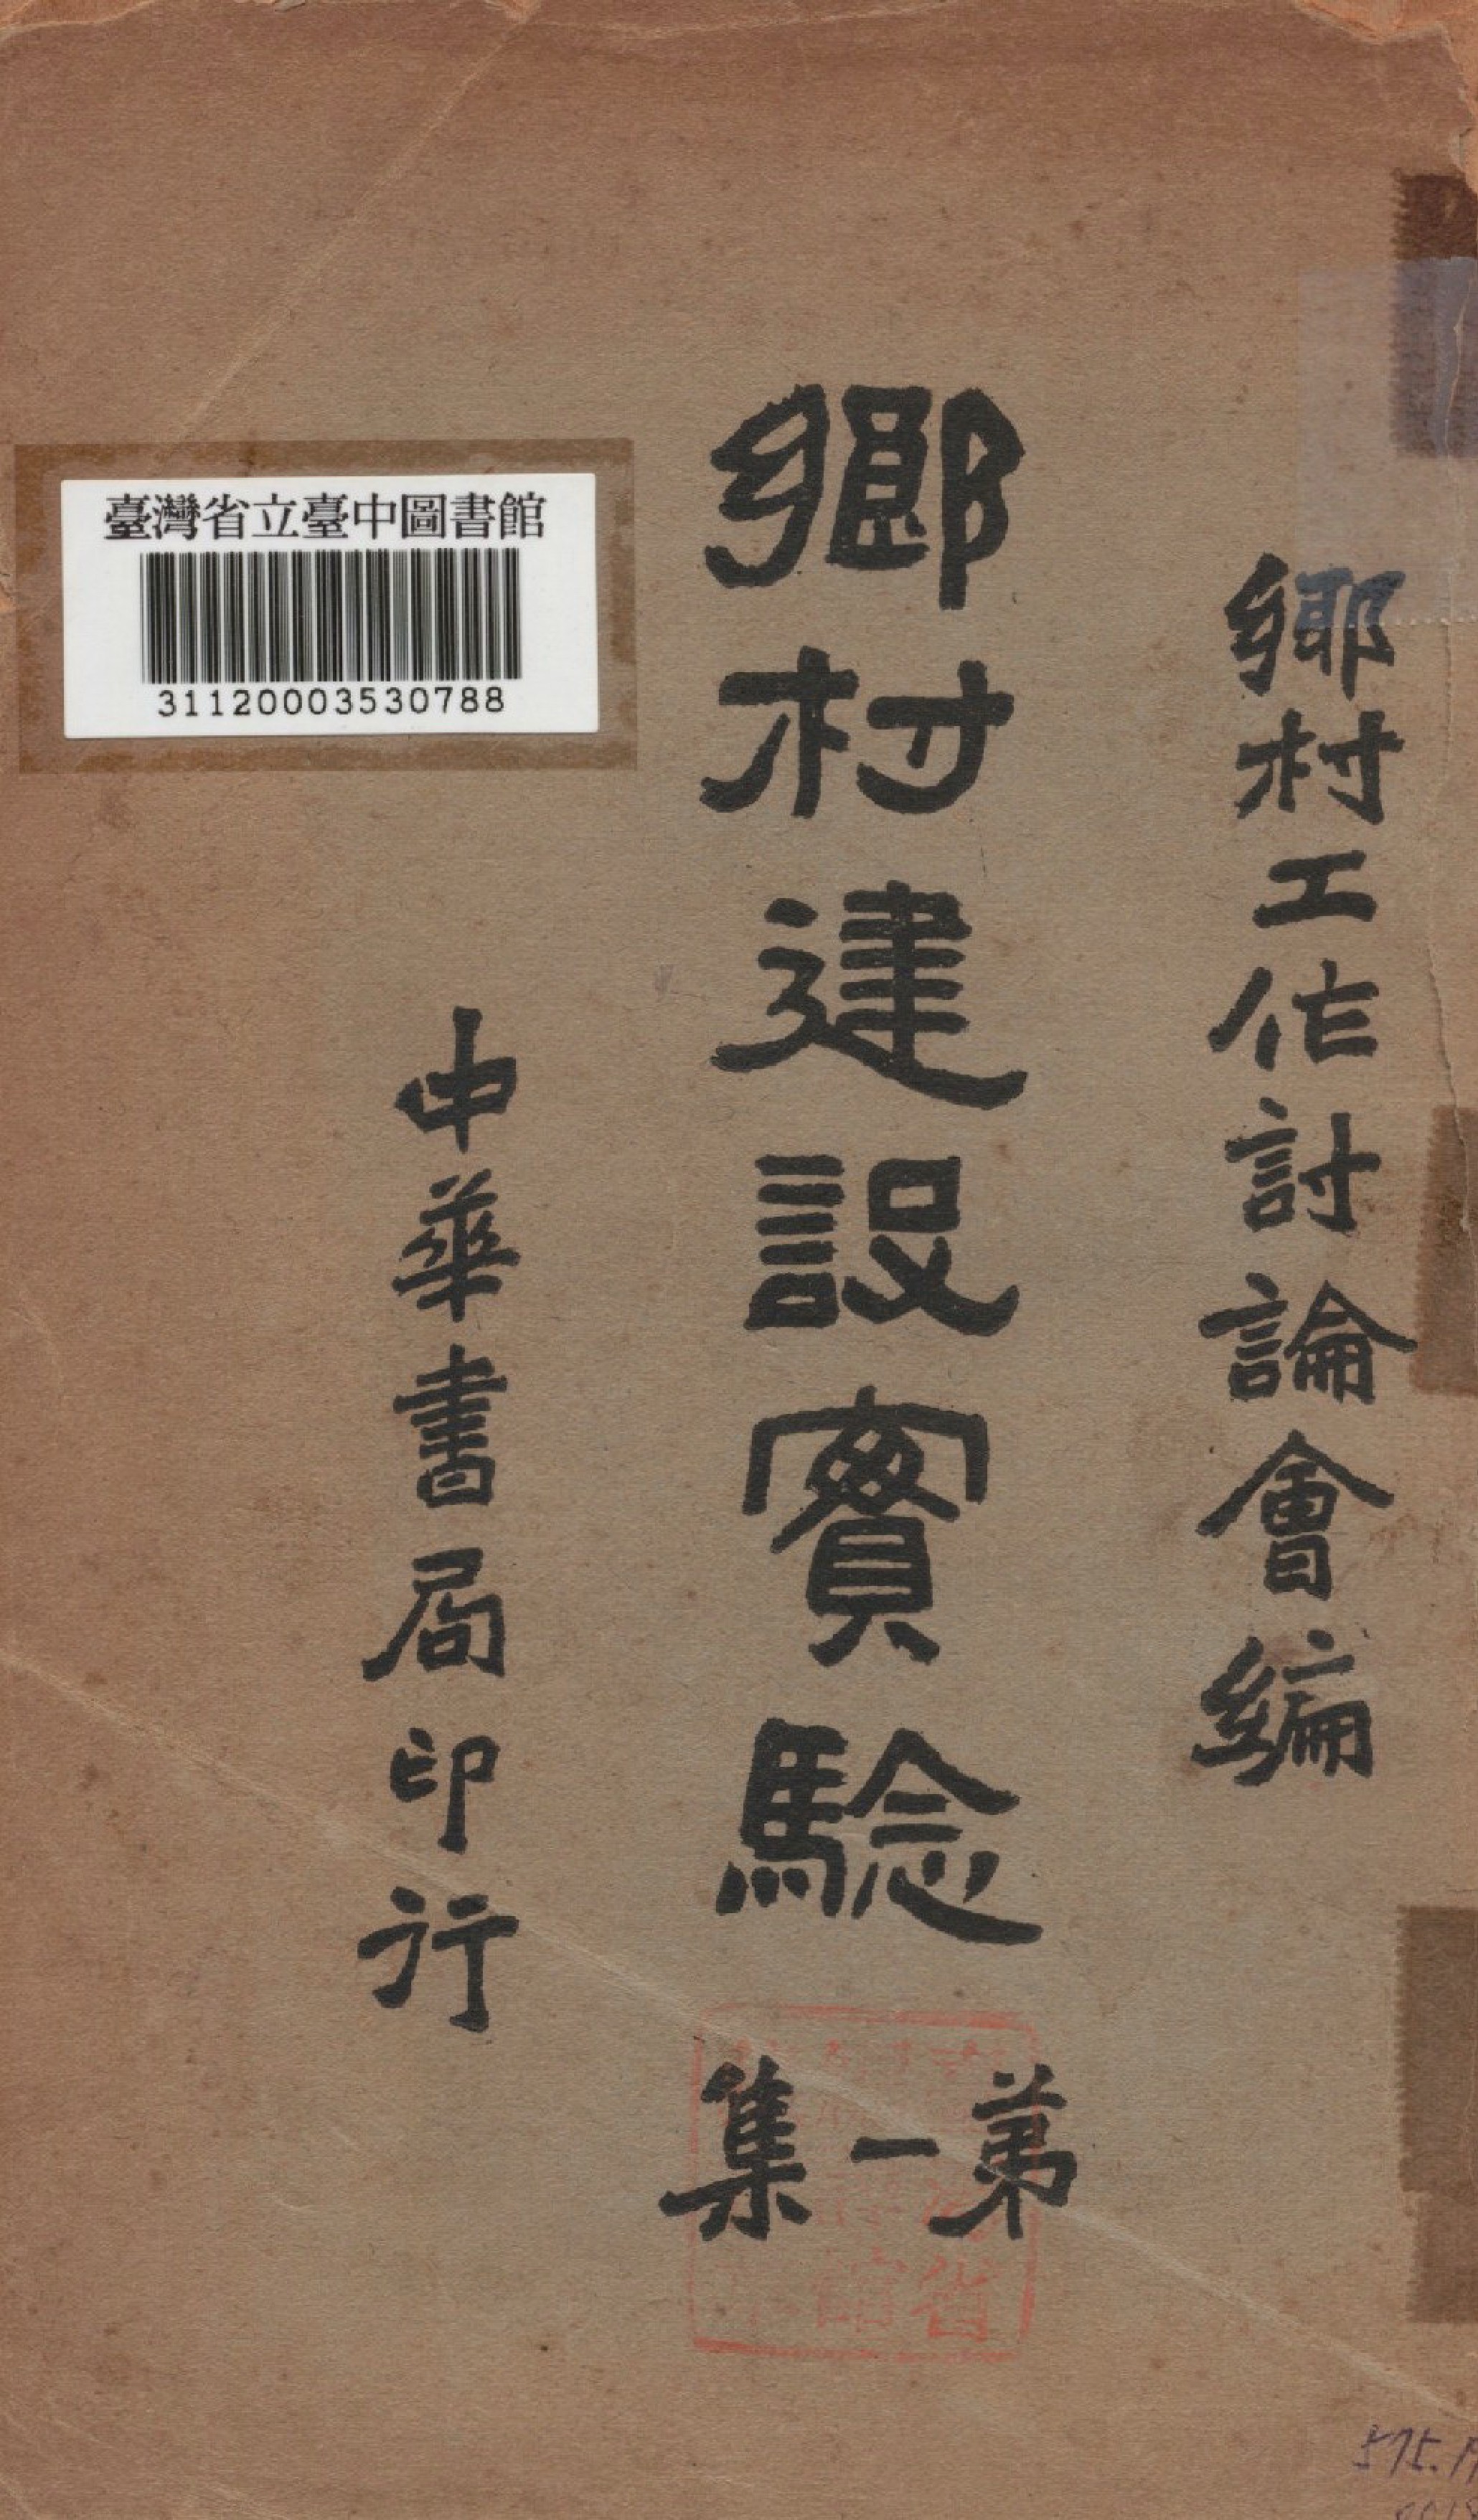 鄉村工作討論會編
鄉村建設實驗
第一集
中華書局印行
臺灣省立臺中圖書館
31120003530788